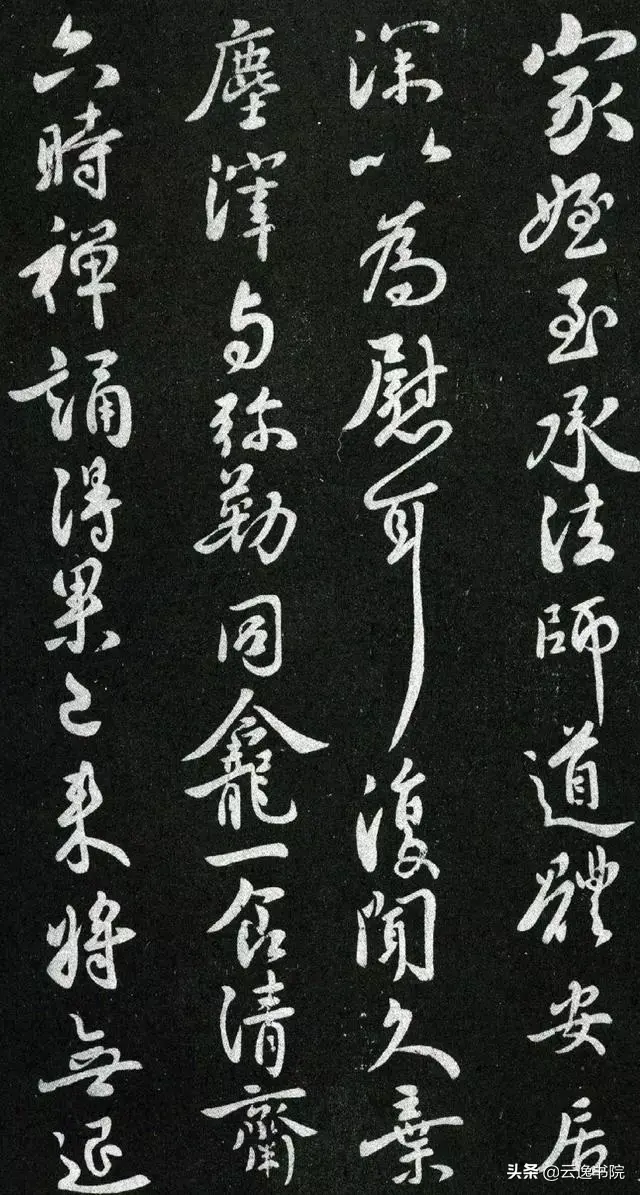 家姪至承法師道體安居
深以為慰耳復聞久棄
塵滓与弥勒同龕一食清齋
六時禪誦得果已来將無退
头条 @云逸书院